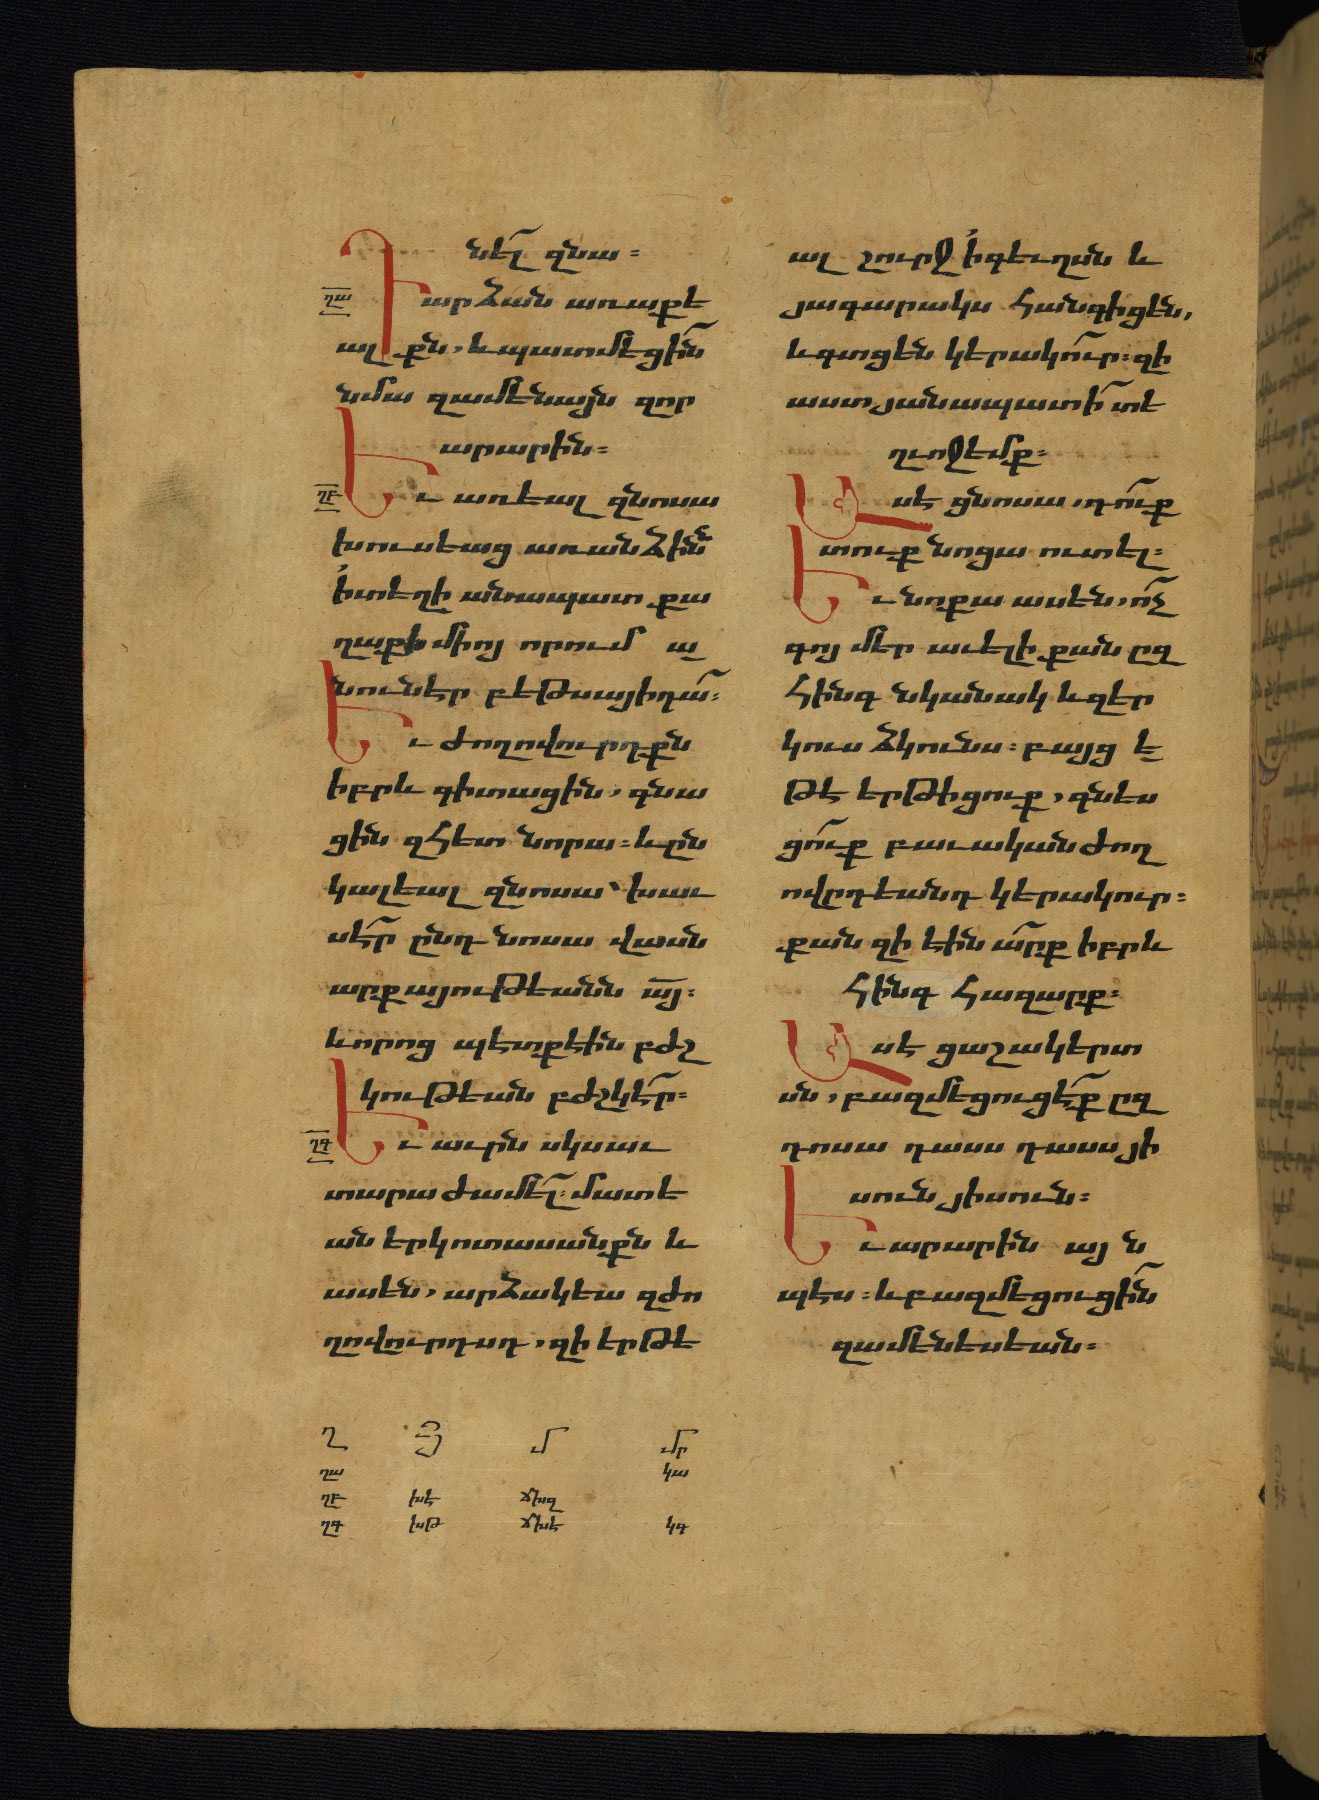 նել՜ զնա։
ղա
Դարձան առաքե
ալ քն, և պատմեցին՜
նմա զամենայն զոր
արարին։
ղբ
Եւ առեալ զնոսա
խուսեաց առանձինն
ի տեղի անապատ քա
ղաքի միոյ որում ա
նուն էր բեթսայիդա՜։
Եւ ժողովուրդքն
իբրև գիտացին, գնա
ցին զհետ նորա։ և ըն
կալեալ զնոսա՝ խաւ
սէր՜ ընդ նոսա վասն
արքայութեանն ա՜յ։
և որոց պէտք էին բժշ
կութեան բժշկէր՜։
ղգ
Եւ աւրն սկսաւ
տարաժամել՜։ մատե
ան երկոտասանքն և
ասեն, արձակեա զժո
ղովուրդսդ, զի երթե
ալ շուրջ ի գեւղսն և
յագարակս հանգիցեն,
և գտցեն կերակու՜ր։ զի
աստ յանապատի՜ տե
ղւոջ եմք։
Ասէ ցնոսա, դու՜ք
տուք նոցա ուտել։
Եւ նոքա ասեն, ո՜չ
գոյ մեր աւելի քան ըզ
հինգ նկանակ և զեր
կուս ձկունս։ բայց ե
թէ երթիցուք, գնես
ցու՜ք բաւական ժող
ովըդեանդ կերակուր։
քան զի էին ա՜րք իբրև
հինգ հազարք։
Ասէ ցաշակերտ
սն, բազմեցուցէ՜ք ըզ
դոսա դասս դասս յի
սուն յիսուն։
Եւ արարին այն
պէս։ և բազմեցուցին՜
զամենեսեան։
Ղ Յ Մ Մր
ղա կա
ղբ խէ ճխզ
ղգ խթ ճխէ կգ